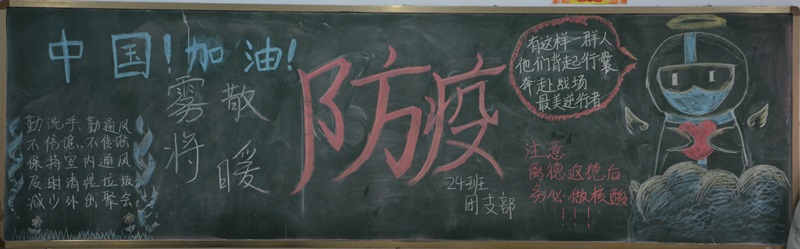 中国！加油！
雾散
将暖
勤洗手、勤通风
不信谣、不传谣
保持室内通风
及时清理垃圾
减少外出聚会
防疫
24班
团支部
有这样一群人
他们背起行囊
奔赴战场
最美逆行者
注意
离德返德后
务必做核酸
！！！